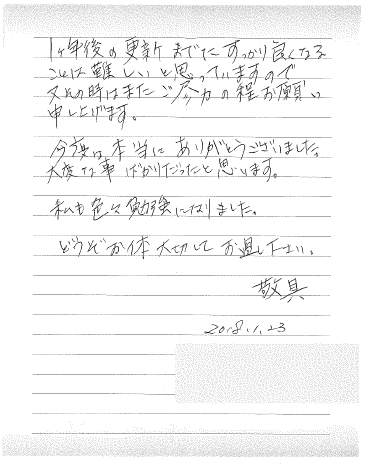 1ヶ年後の更新までにすっかり良くなる
ことは難しいと思っていますので
又その時はまたご尽力の程お願い
申し上げます。
今度は本当にありがとうございました。
大変な事ばかりだったと思います。
私も色々勉強になりました。
どうぞお体大切にしてお過し下さい。
敬具
2018.1.23